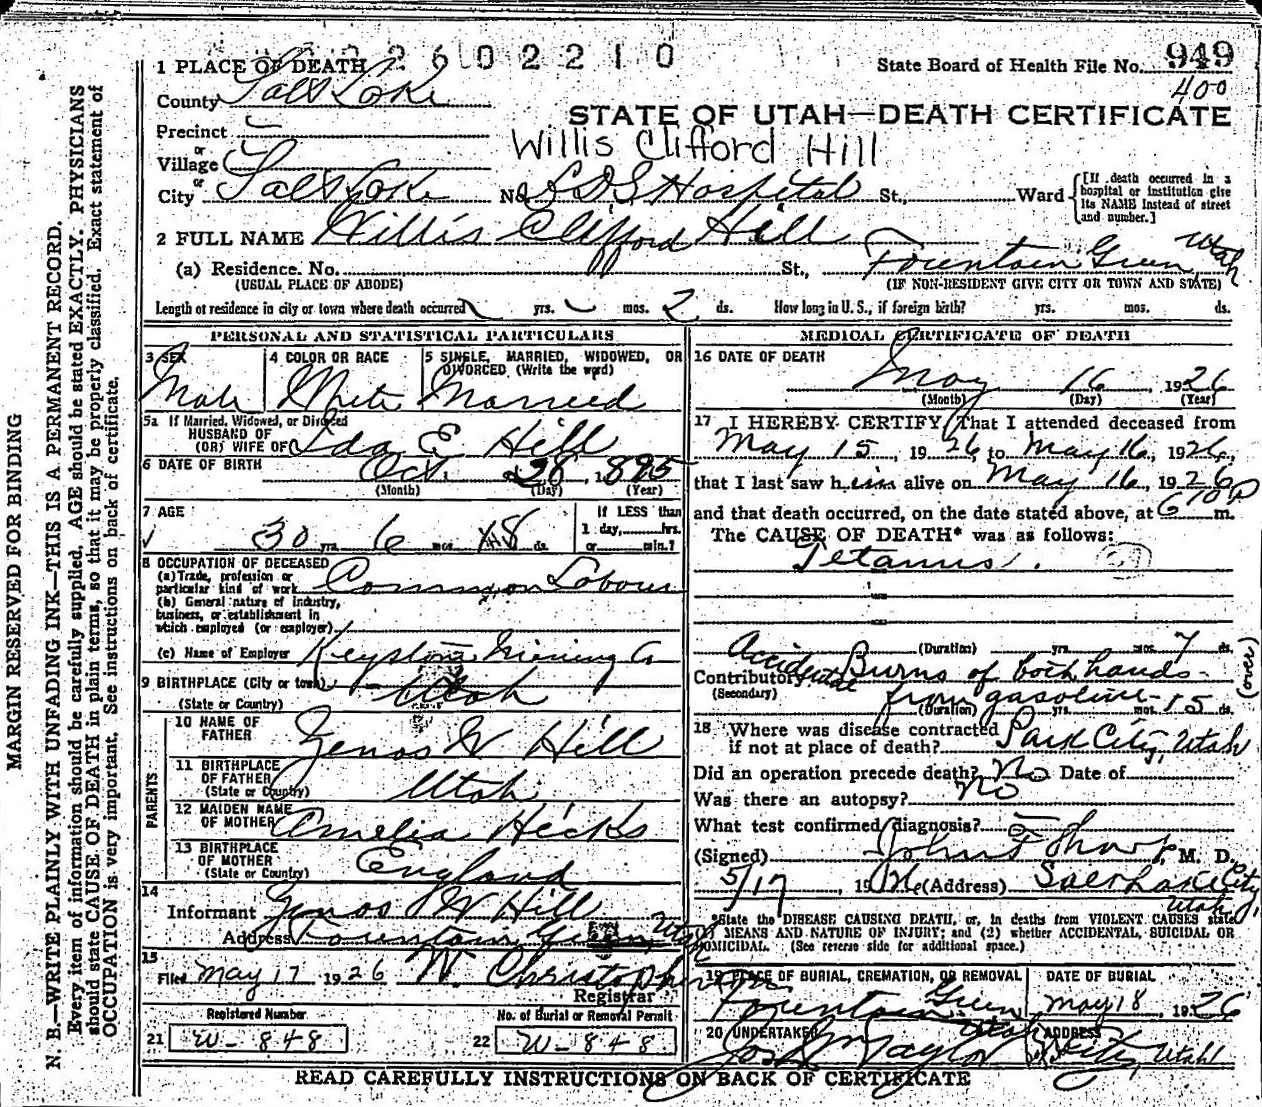 2 6 0 2 2 1 0
State Board of Health File No. 949
400
1 PLACE OF DEATH
County Salt Lake
STATE OF UTAH—DEATH CERTIFICATE
Precinct
or
Willis Clifford Hill
Village
or
City Salt Lake No. L D S Hospital St., Ward
[If death occurred in a hospital or institution give its NAME instead of street and number.]
2 FULL NAME Willis Clifford Hill
(a) Residence. No. St., Fountain Green, Utah
(USUAL PLACE OF ABODE) (IF NON-RESIDENT GIVE CITY OR TOWN AND STATE)
Length of residence in city or town where death occurred yrs. mos. 2 ds. How long in U. S., if foreign birth? yrs. mos. ds.
PERSONAL AND STATISTICAL PARTICULARS
3 SEX
Male
4 COLOR OR RACE
White
5 SINGLE, MARRIED, WIDOWED, OR
DIVORCED (Write the word)
Married
5a If Married, Widowed, or Divorced
HUSBAND OF
(OR) WIFE OF Ida E Hill
6 DATE OF BIRTH Oct 28, 1895
(Month) (Day) (Year)
7 AGE
30 yrs. 6 mos. 18 ds.
If LESS than
1 day, hrs.
or min.?
8 OCCUPATION OF DECEASED
(a) Trade, profession or
particular kind of work Common Labour
(b) General nature of industry,
business, or establishment in
which employed (or employer)
(c) Name of Employer Keystone Mining Co
9 BIRTHPLACE (City or town)
(State or Country) Utah
PARENTS
10 NAME OF
FATHER Zenos W Hill
11 BIRTHPLACE
OF FATHER
(State or Country) Utah
12 MAIDEN NAME
OF MOTHER Amelia Hicks
13 BIRTHPLACE
OF MOTHER
(State or Country) England
14
Informant Zenos W Hill
Address Fountain Green, Utah
15
Filed May 17 1926 W. Christopherson
Registrar
Registered Number
21 W-848
No. of Burial or Removal Permit
22 W-848
MEDICAL CERTIFICATE OF DEATH
16 DATE OF DEATH
May 16, 1926
(Month) (Day) (Year)
17 I HEREBY CERTIFY That I attended deceased from
May 15, 1926, to May 16, 1926,
that I last saw him alive on May 16, 1926
and that death occurred, on the date stated above, at 6 10 P m.
The CAUSE OF DEATH* was as follows:
Tetanus.
(Duration) yrs. mos. 7 ds.
Contributory Accidental Burns of both hands
(Secondary) from gasoline
(Duration) yrs. mos. 15 ds.
(over)
18 Where was disease contracted
if not at place of death? Park City, Utah
Did an operation precede death? No Date of
Was there an autopsy? No
What test confirmed diagnosis?
(Signed) John F Sharp, M. D.
5/17, 1926 (Address) Salt Lake City, Utah
*State the DISEASE CAUSING DEATH, or, in deaths from VIOLENT CAUSES state
(1) MEANS AND NATURE OF INJURY; and (2) whether ACCIDENTAL, SUICIDAL OR
HOMICIDAL. (See reverse side for additional space.)
19 PLACE OF BURIAL, CREMATION, OR REMOVAL
Fountain Green Utah
DATE OF BURIAL
May 18, 1926
20 UNDERTAKER
Jos Wm Taylor
ADDRESS
City, Utah
READ CAREFULLY INSTRUCTIONS ON BACK OF CERTIFICATE
MARGIN RESERVED FOR BINDING
N. B.—WRITE PLAINLY WITH UNFADING INK—THIS IS A PERMANENT RECORD.
Every item of information should be carefully supplied. AGE should be stated EXACTLY. PHYSICIANS
should state CAUSE OF DEATH in plain terms, so that it may be properly classified. Exact statement of
OCCUPATION is very important. See instructions on back of certificate.